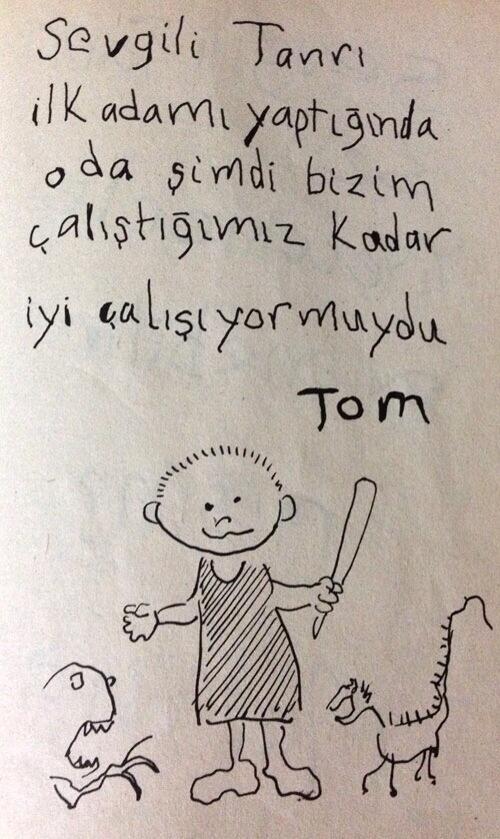 Sevgili Tanrı
ilk adamı yaptığında
o da şimdi bizim
çalıştığımız kadar
iyi çalışıyormuydu
Tom